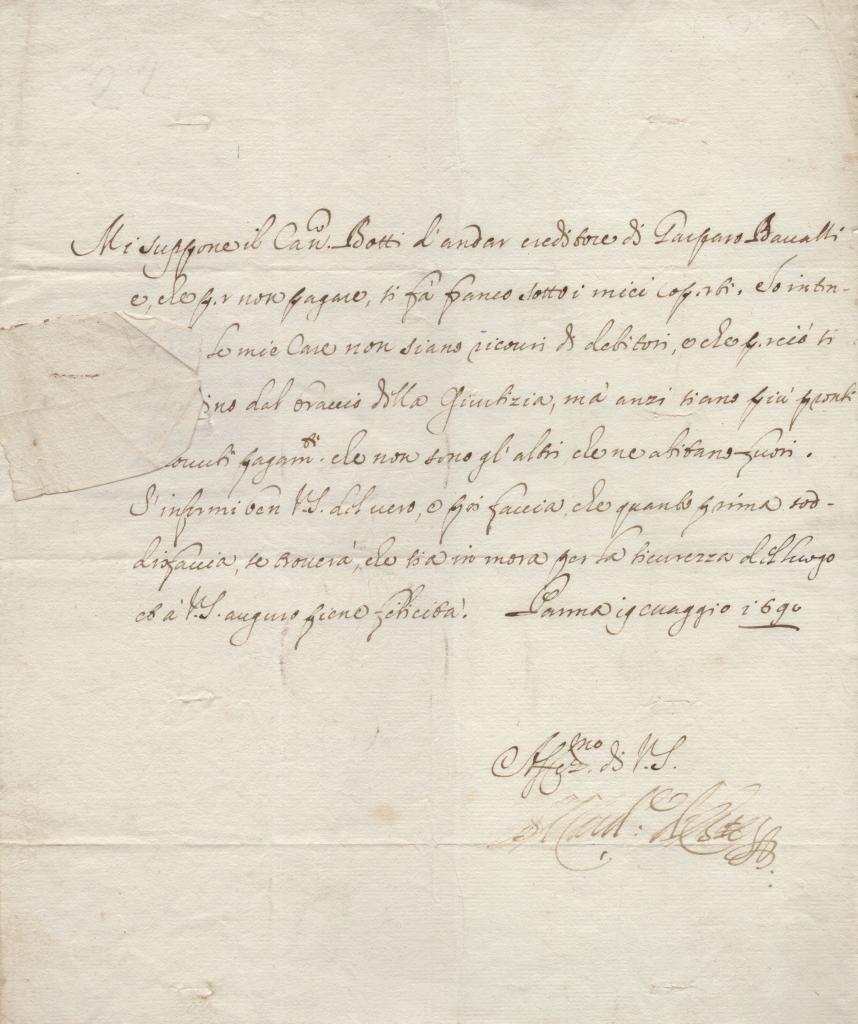 22
Mi suppone il Cau.r Botti d'andar creditore di Gasparo Bauatti
e, che p.r non pagare, si fà franco sotto i miei cop.rti. Io inten-
le mie Case non siano ricouri di debitori, e che p.rciò si
ino dal braccio della Giustizia, mà anzi siano più pronti
ouuti pagam.ti che non sono gl'altri che ne abitano fuori.
S'informi ben V.S. del uero, e poi faccia, che quanto prima sod-
disfaccia, se trouerà, che sia in mora per la sicurezza del luogo
et à V.S. auguro piene felicità. Parma 19 Maggio 1690
Aff.mo di V.S.
Il Card. d'Este